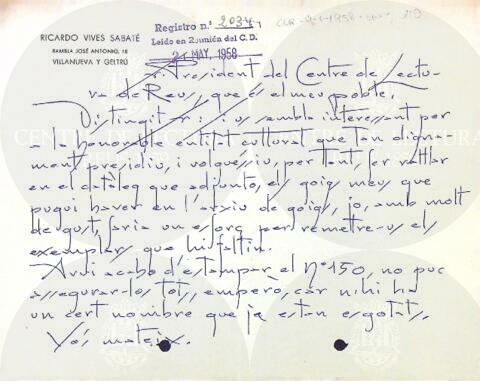 RICARDO VIVES SABATÉ
RAMBLA JOSÉ ANTONIO, 18
VILLANUEVA Y GELTRÚ
Registro n.º 2034
Leido en Reunión del C. D.
21 MAY. 1958
President del Centre de Lectu-
ra de Reus, que és el meu poble.
Distingit Sr.: si us sembla interessant per
a la honorable entitat cultural que tan digna-
ment presidiu, i volguessiu, per tant, fer ratllar
en el catàleg que adjunto, els goigs meus que
pugui haver en l'arxiu de goigs, jo, amb molt
de gust, faria un esforç per remetre-us els
exemplars que hi faltin.
Avui acabo d'estampar el Nº 150, no puc
assegurar-los tots, emperò, car n'hi ha
un cert nombre que ja estan esgotats.
Vós mateix.